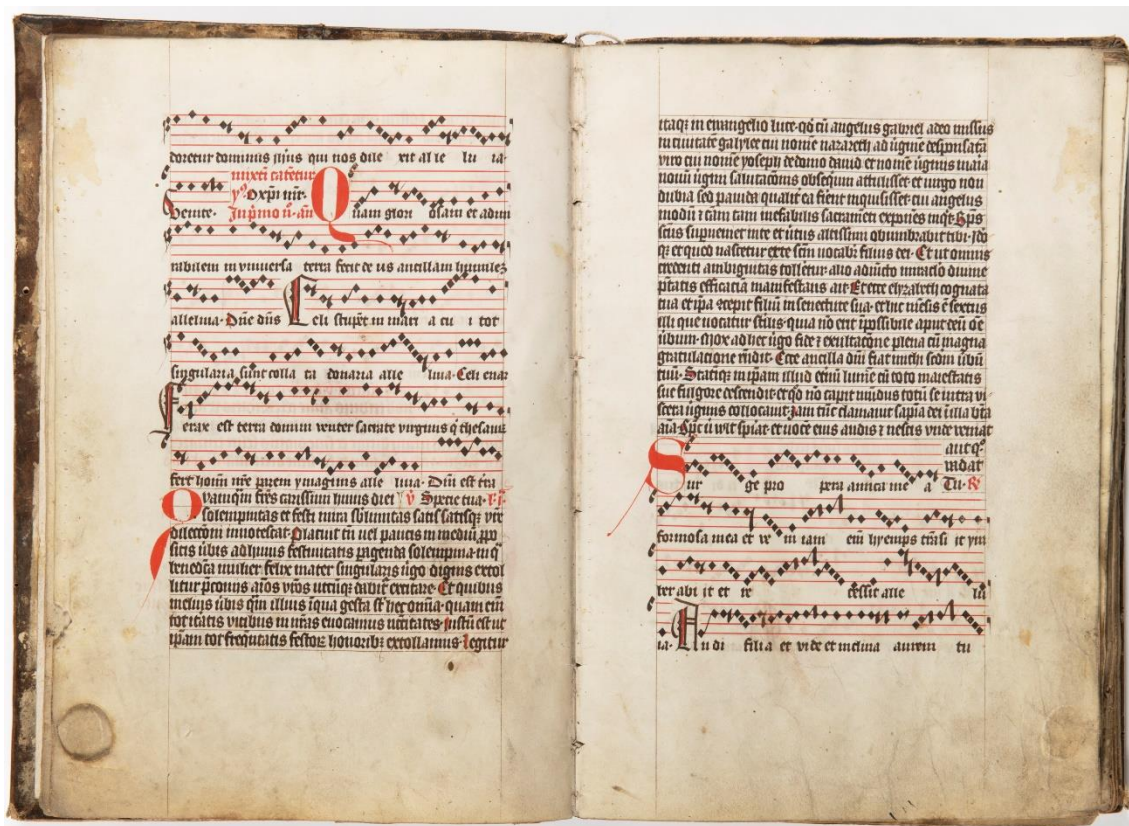 doretur dominus ihus qui nos dile xit al le lu ia·
Venite·
Inp̄mo
Quam glori osam et admi
rabilem in vniuersa terra fecit de us ancillam humilē
alleluia· Dn̄e dn̄s Celi stupēt in mari a cu i tot
singularia sunt colla ta donaria alle luia· Celi enar
Ferax est terra domini venter sacrate virginis q̄ thesauꝝ
fert homī nr̄e parem ymaginis alle luia· Dn̄i est tr̄a
Quamqm̄ fr̄es carissimi huius diei Specie tua·
solempnitas et festi mira sublimitas satis satisq;
dilectōm innotescat· Placuit tn̄ uel paucis in mediū p̄po
sitis ūbis ad huius festiuitatis pagenda solempnia
benedcā mulier felix mater singularis ūgo
Et quibus
melius ūbis qm̄ illius
tot itatis vicibus in nr̄as euocamus Justū est ut
ip̄am tot festoꝝ honoribꝫ extollamus· Legitur
itaqꝫ in euangelio luce· qd̄ cū angelus gabriel a deo missus
in ciuitatē galylee cui nomē nazareth ad ūginē desponsatā
viro cui nomē yoseph de domo dauid et nomē ūginis maia
noui ūgini salutacōnis obsequiū attulisset et uirgo non
dubia sed pauida qualit̄ ea fierent inquisisset· cui angelus
modū ⁊ tam ineffabilis sacramēti expones inq̄t· Sp̄s
scūs supueniet in te et ūtus altissimi obumbrabit tibi· Ido
qꝫ et quod nascetur ex te scm̄ uocabit̄ filius dei· Et ut omnis
credenti ambiguitas tolletur· alio adiūcto miraclo diuine
ptatis efficaciā manifestans ait· Et ecce elyzabeth cognata
tua et ip̄a ꝯcepit filiū in senectute sua· et hic mēsis ē sextus
illi que uocatur stīlis· quia nō erit īpossibile aput deū oē
ūbum· Mox ad hec ūgo fide ⁊ exultacōne plena cū magna
gratulacione rn̄dit· Ecce ancilla dn̄i fiat michi scdm ūbū
tuū· Statiqꝫ in ipsam illud etnū lumē cū toto maiestatis
sue fulgore descendit· et qd̄ nō capit mūdus totū se intra vi
scera ūginis collocauit· Jam tūc clamauit sapīa dei
Sp̄c ū wlt spirat· et uocē eius audis ⁊ nescis vnde veniat
aut q°
vadat
Sur ge pro pera amica me a Tu·
formosa mea et ve ni iam em̄ hyemps trāsi it ym
ber abi it et re cessit alle lu
ia· Au di fili a et vide et inclina aurem tu